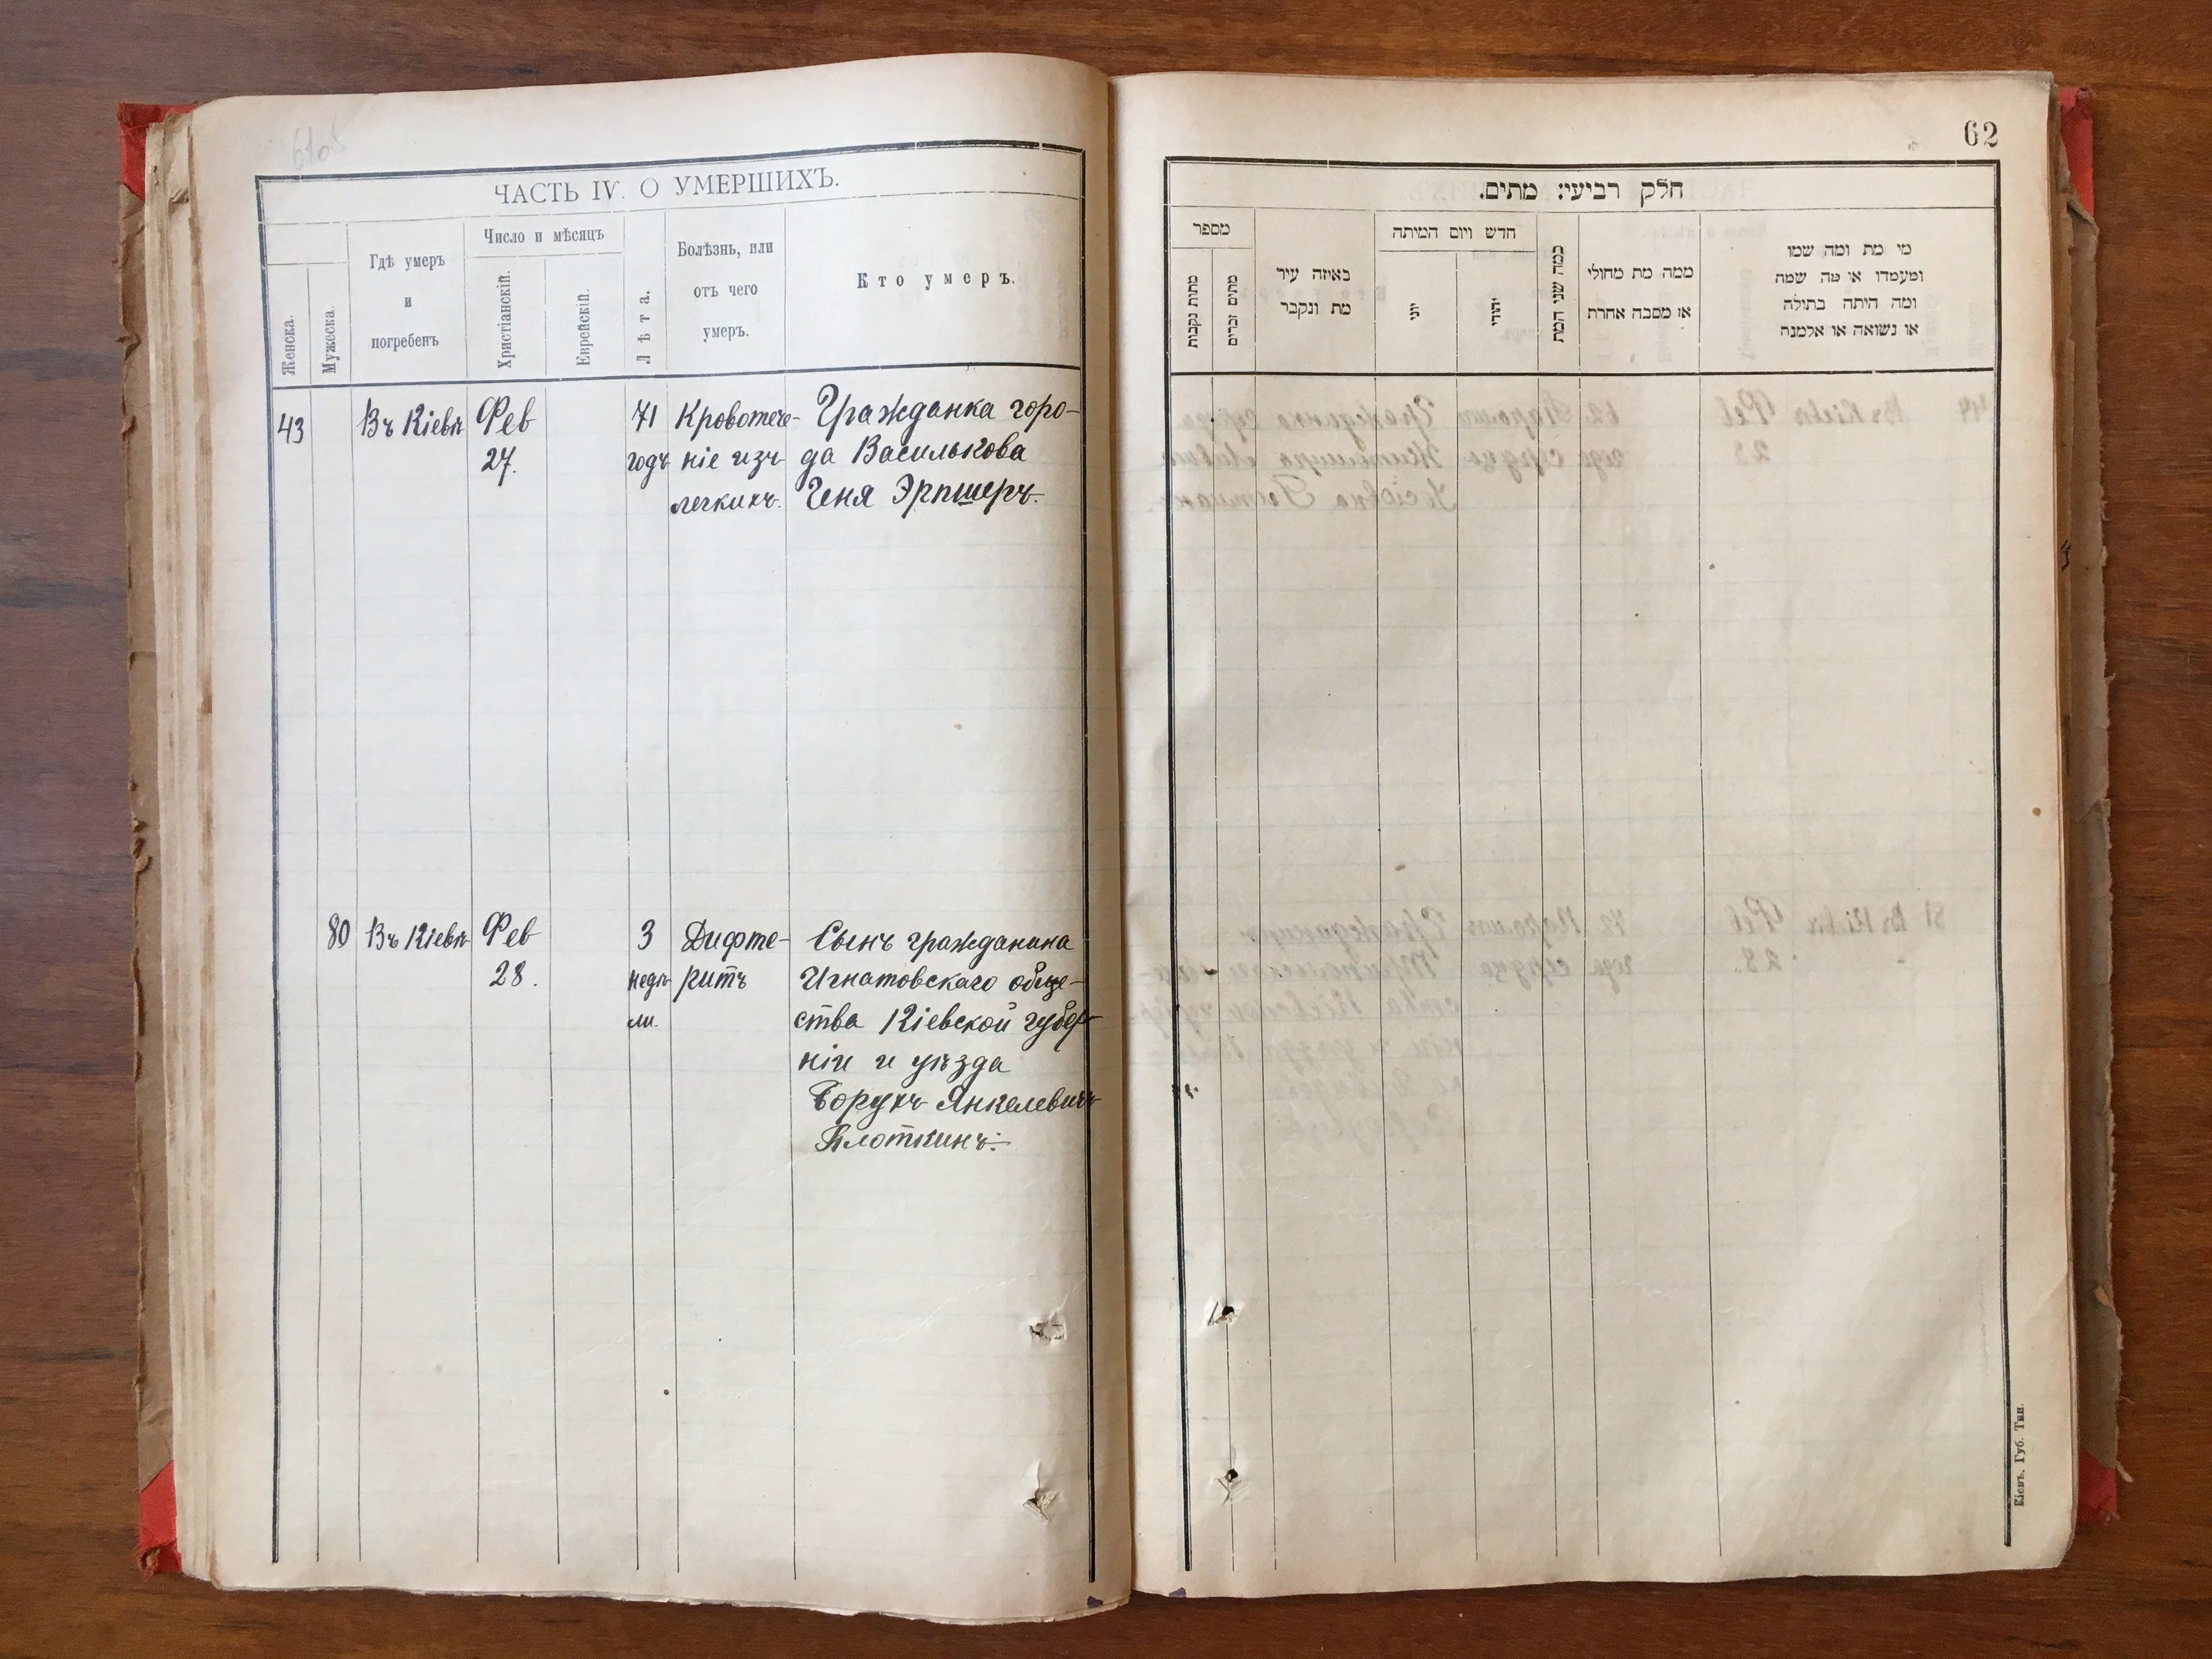 ЧАСТЬ IV. О УМЕРШИХЪ.
Женска.
Мужеска.
Гдѣ умеръ
и
погребенъ
Число и мѣсяцъ
Христіанскій.
Еврейскій.
Лѣта.
Болѣзнь, или
отъ чего
умеръ.
Кто умеръ.
43
Въ Кіевѣ
Фев
27.
71
годъ
Кровотече-
ніе изъ
легкихъ.
Гражданка горо-
да Василькова
Геня Эрпшеръ.
80
Въ Кіевѣ
Фев
28.
3
недѣ
ли.
Дифте-
ритъ
Сынъ гражданина
Игнатовскаго обще-
ства Кіевской губер-
ніи и уѣзда
Борухъ Янкелевичъ
Плоткинъ.
62
חלק רביעי: מתים.
מספר
מתות נקבות
מתים זכרים
באיזה עיר
מת ונקבר
חדש ויום המיתה
יוני
יהודי
כמה שני המת
ממה מת מחולי
או מסבה אחרת
מי מת ומה שמו
ומעמדו או מה שמה
ומה היתה בתולה
או נשואה או אלמנה
Кіевъ. Губ. Тип.